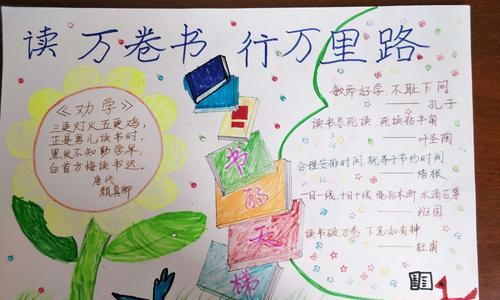 读万卷书 行万里路
《劝学》
三更灯火五更鸡,
正是男儿读书时.
黑发不知勤学早,
白首方悔读书迟.
唐代
颜真卿
书
的
天
梯
敏而好学,不耻下问
——孔子
读书
——叶圣陶
合理安排时间,就等于节约时间
——培根
一日一钱,十日十钱,绳锯木断,水滴石穿
——班固
读书破万卷 下笔如有神
——杜甫